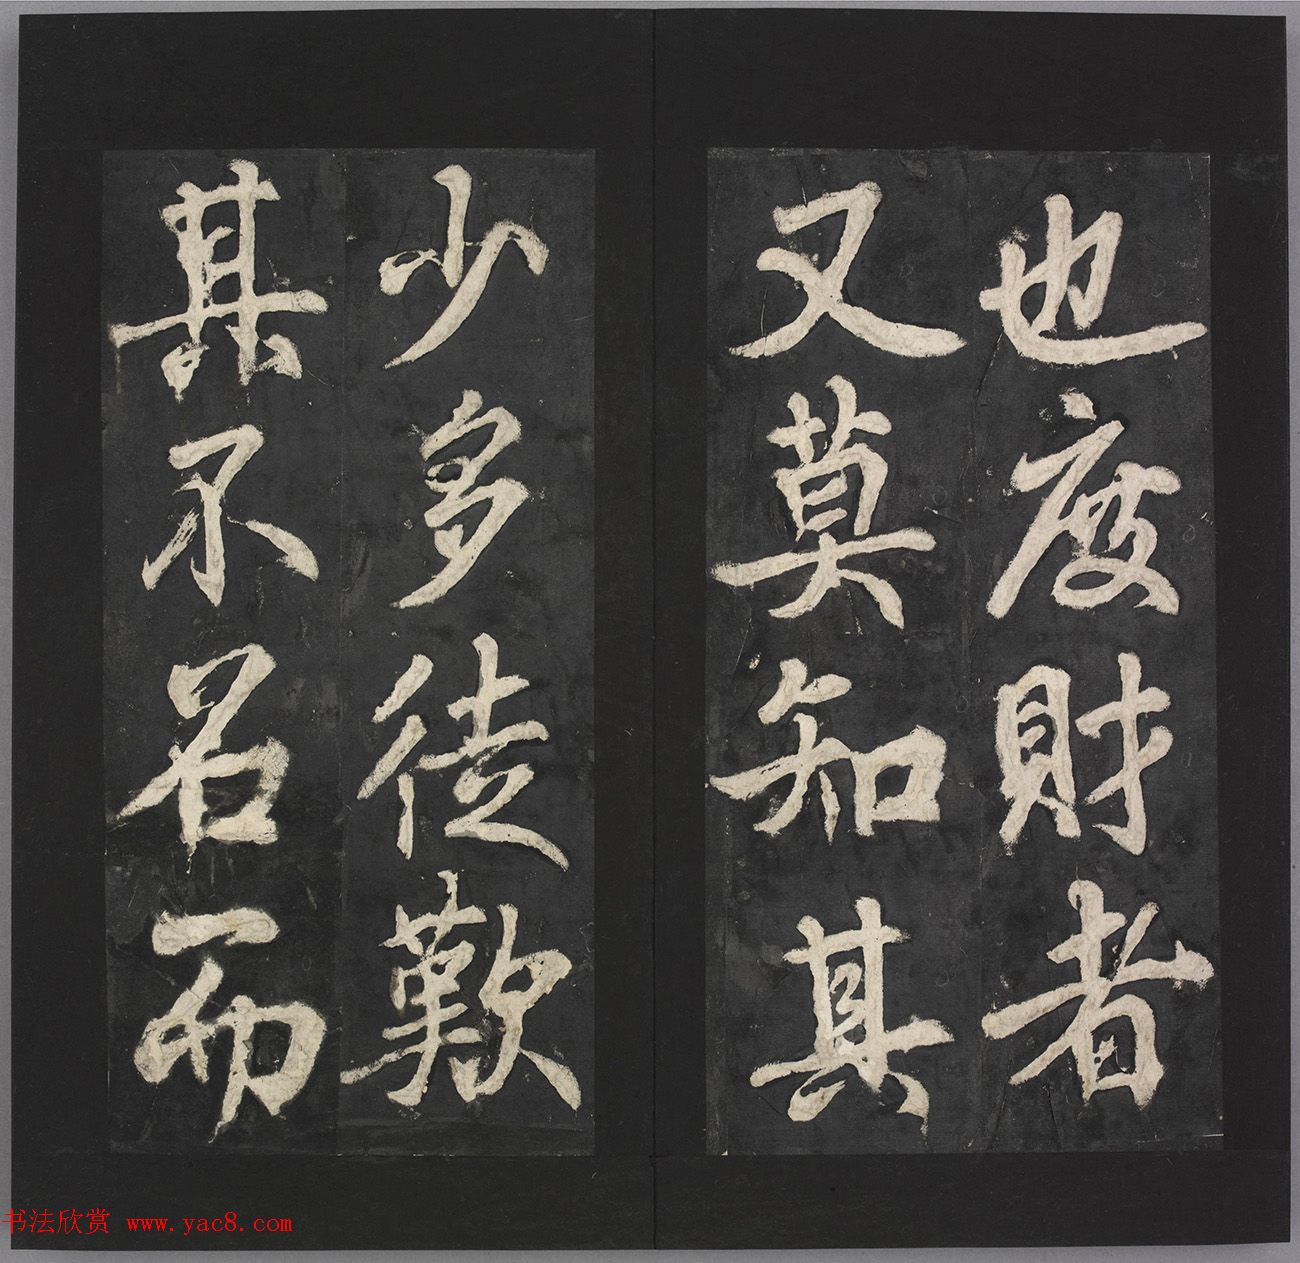 也度財者
又莫知其
少多徒歎
其不名而
书法欣赏 www.yac8.com